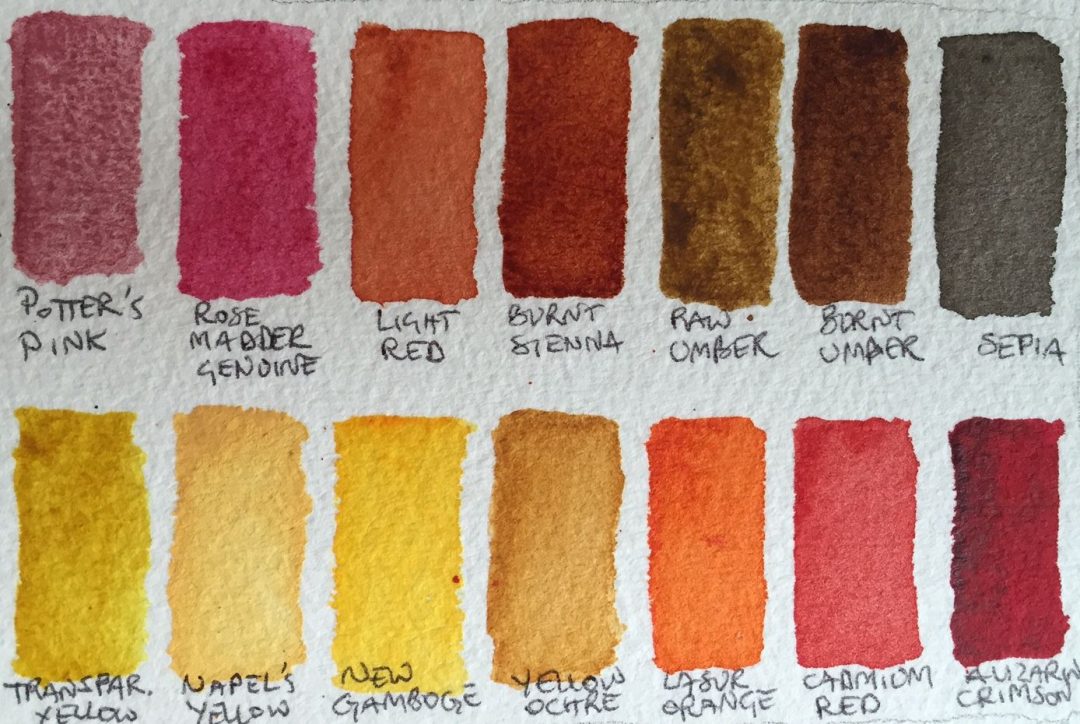 POTTER'S
PINK
ROSE
MADDER
GENUINE
LIGHT
RED
BURNT
SIENNA
RAW
UMBER
BURNT
UMBER
SEPIA
TRANSPAR.
YELLOW
NAPEL'S
YELLOW
NEW
GAMBOGE
YELLOW
OCHRE
LASUR
ORANGE
CADMIUM
RED
ALIZARIN
CRIMSON